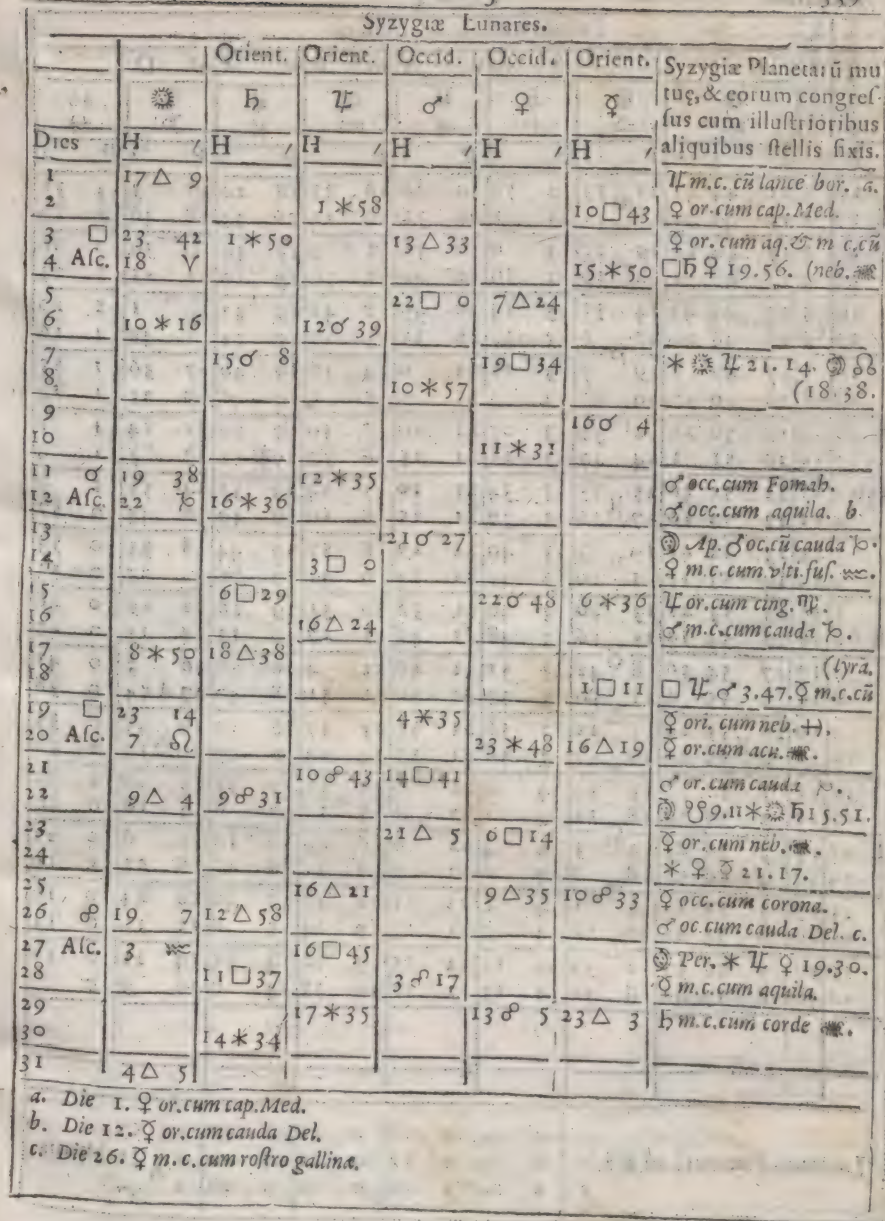 Syzygiæ Lunares.
Orient. Orient. Occid. Occid. Orient. Syzygiæ Planetarū mu
☉ ♄ ♃ ♂ ♀ ☿ tuę, & eorum congreſ-
ſus cum illuſtrioribus
Dies H ′ H ′ H ′ H ′ H ′ H ′ aliquibus ſtellis fixis.
1 17 △ 9 ♃ m.c. cū lance bor. a.
2 1 ⚹ 58 10 □ 43 ♀ or. cum cap. Med.
3 □ 23 42 1 ⚹ 50 13 △ 33 ☿ or. cum aq. & m c. cū
4 Aſc. 18 ♈ 15 ⚹ 50 □ ♄ ♀ 19.56. (neb. ♐
5 22 □ 0 7 △ 24
6 10 ⚹ 16 12 ☌ 39
7 15 ☌ 8 19 □ 34 ⚹ ☉ ♃ 21.14. ☽ ☊
8 10 ⚹ 57 (18.38.
9 16 ☌ 4
10 11 ⚹ 31
11 ☌ 19 38 12 ⚹ 35 ♂ occ. cum Fomah.
12 Aſc. 22 ♑ 16 ⚹ 36 ♂ occ. cum aquila. b
13 21 ☌ 27 ☽ Ap. ♂ oc. cū cauda ♑.
14 3 □ 0 ♀ m.c. cum vlti. fuſ. ♒.
15 6 □ 29 22 ☌ 48 6 ⚹ 36 ♃ or. cum cing. ♍.
16 16 △ 24 ♂ m.c. cum cauda ♑.
17 8 ⚹ 50 18 △ 38 (lyra.
18 1 □ 11 □ ♃ ♂ 3.47. ☿ m.c. cū
19 □ 23 14 4 ⚹ 35 ☿ ori. cum neb. ♓.
20 Aſc. 7 ♌ 23 ⚹ 48 16 △ 19 ☿ or. cum acu. ♏.
21 10 ☍ 43 14 □ 41 ♂ or. cum cauda ♑.
22 9 △ 4 9 ☍ 31 ☽ ☋ 9.11 ⚹ ☉ ♄ 15.51.
23 21 △ 5 6 □ 14 ☿ or. cum neb. ♐.
24 ⚹ ♀ ☿ 21.17.
25 16 △ 21 9 △ 35 10 ☍ 33 ☿ occ. cum corona.
26 ☍ 19 7 12 △ 58 ♂ oc. cum cauda Del. c.
27 Aſc. 3 ♒ 16 □ 45 ☽ Per. ⚹ ♃ ♀ 19.30.
28 11 □ 37 3 ☍ 17 ☿ m.c. cum aquila.
29 17 ⚹ 35 13 ☍ 5 23 △ 3 ♄ m.c. cum corde ♏.
30 14 ⚹ 34
31 4 △ 5
a. Die 1. ♀ or. cum cap. Med.
b. Die 12. ☿ or. cum cauda Del.
c. Die 26. ☿ m. c. cum roſtro gallinæ.